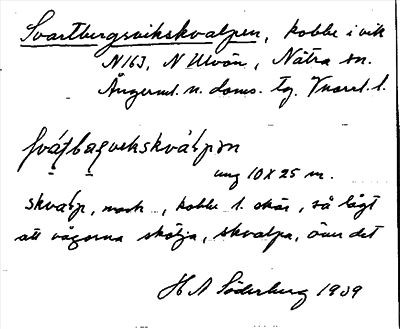 Svartbergsvikskvalpen, kobbe i vik
N163, N Ulvön, Nätra sn.
Ångerml. n. doms. tg. l.
ung 10 x 25 m.
skvalp, mask, kobbe l. skär, så lågt
att vågorna skölja, skvalpa, över det
H A Söderberg 1909